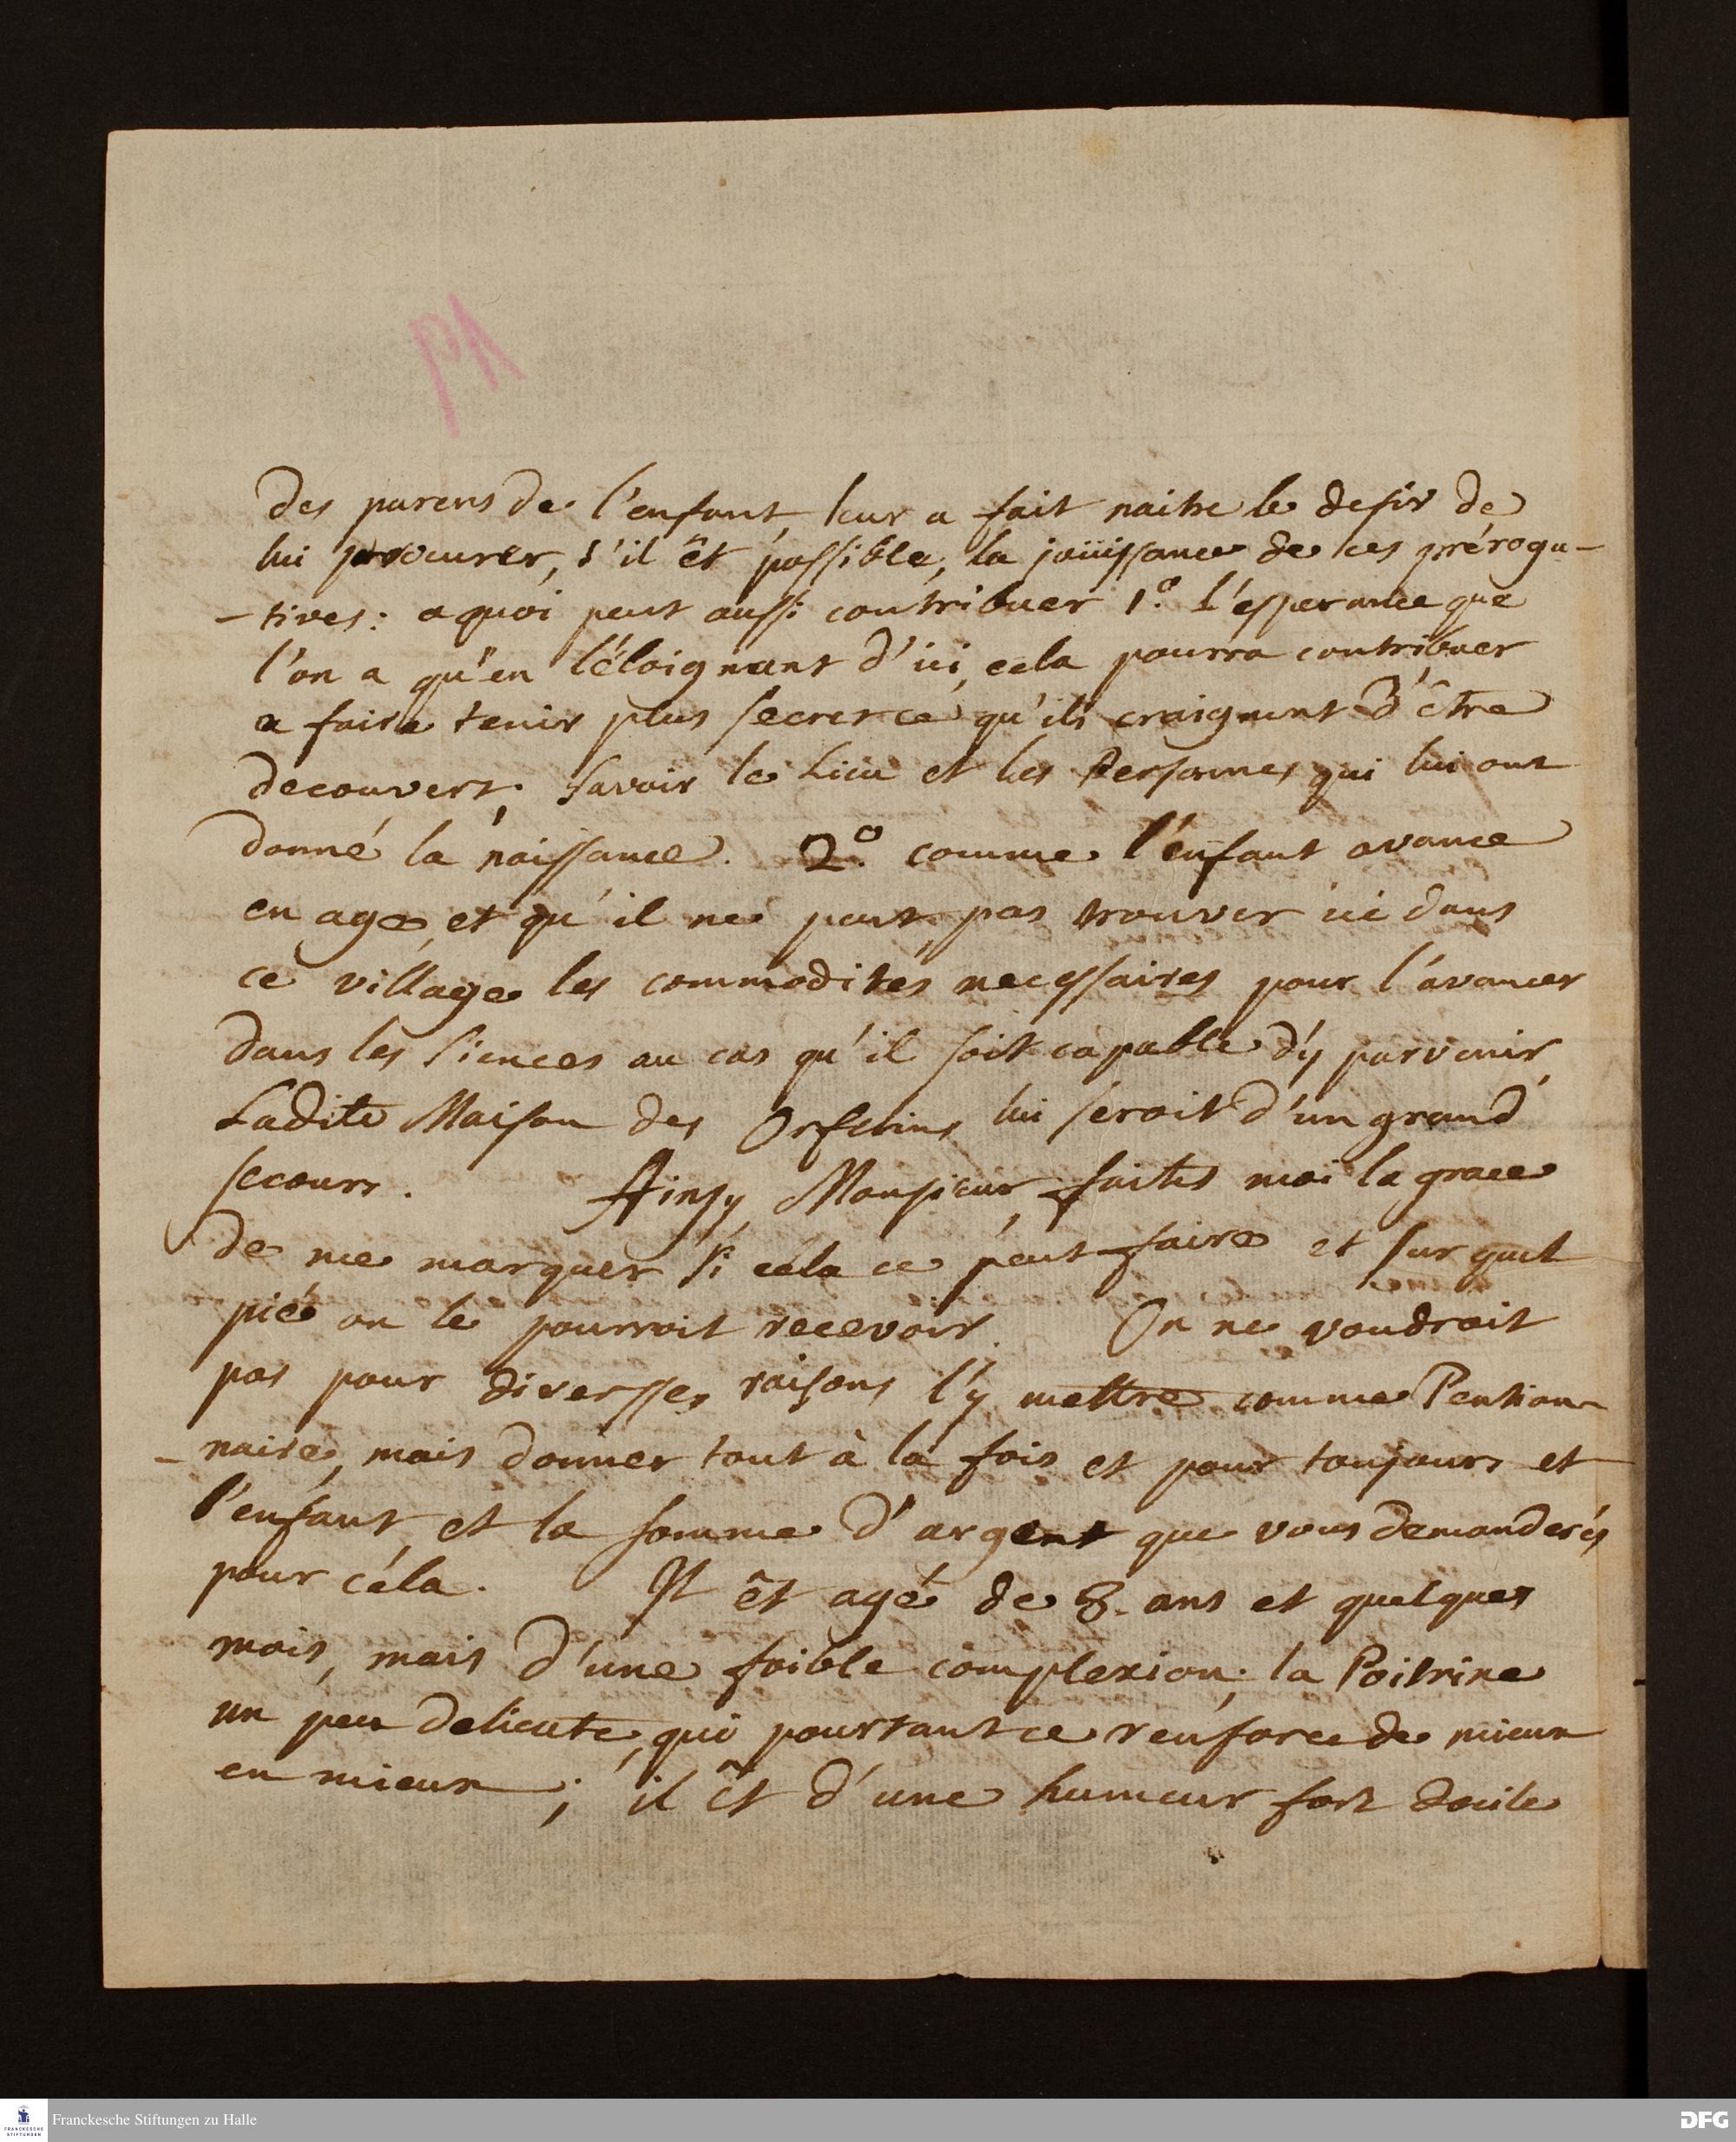 PA
des parens de l'enfant, leur a fait naitre le desir de
lui procurer, s'il êt possible, la joüissance de ces préroga-
-tives: a quoi peut aussi contribuer 1.º l'esperance que
l'on a qu'en l'éloignant d'ici, cela pourra contribuer
a faire tenir plus secret ce qu'ils craignent d'être
decouvert; savoir le Lieu et les Personnes qui lui ont
donné la naissance. 2.º comme l'enfant avance
en age, et qu'il ne peut pas trouver ici dans
ce village les commodités necessaires pour l'avancer
dans les siences au cas qu'il soit capable d'y parvenir,
Ladite Maison des Orfelins lui seroit d'un grand
secours. Ainsy, Monsieur, faites moi la grace
de me marquer si cela ce peut faire et sur quel
pié on le pourroit recevoir. On ne voudroit
pas pour diversses raisons l'y mettre comme Pention-
-naire, mais donner tout à la fois et pour toujours et
l'enfant et la somme d'argent que vous demanderés
pour céla. Il êt agé de 8. ans et quelques
mois, mais d'une foible complexion; la Poitrine
un peu delicate, qui pourtant ce renforce de mieux
en mieux; il êt d'une humeur fort docile
Franckesche Stiftungen zu Halle
FRANCKESCHE STIFTUNGEN
DFG